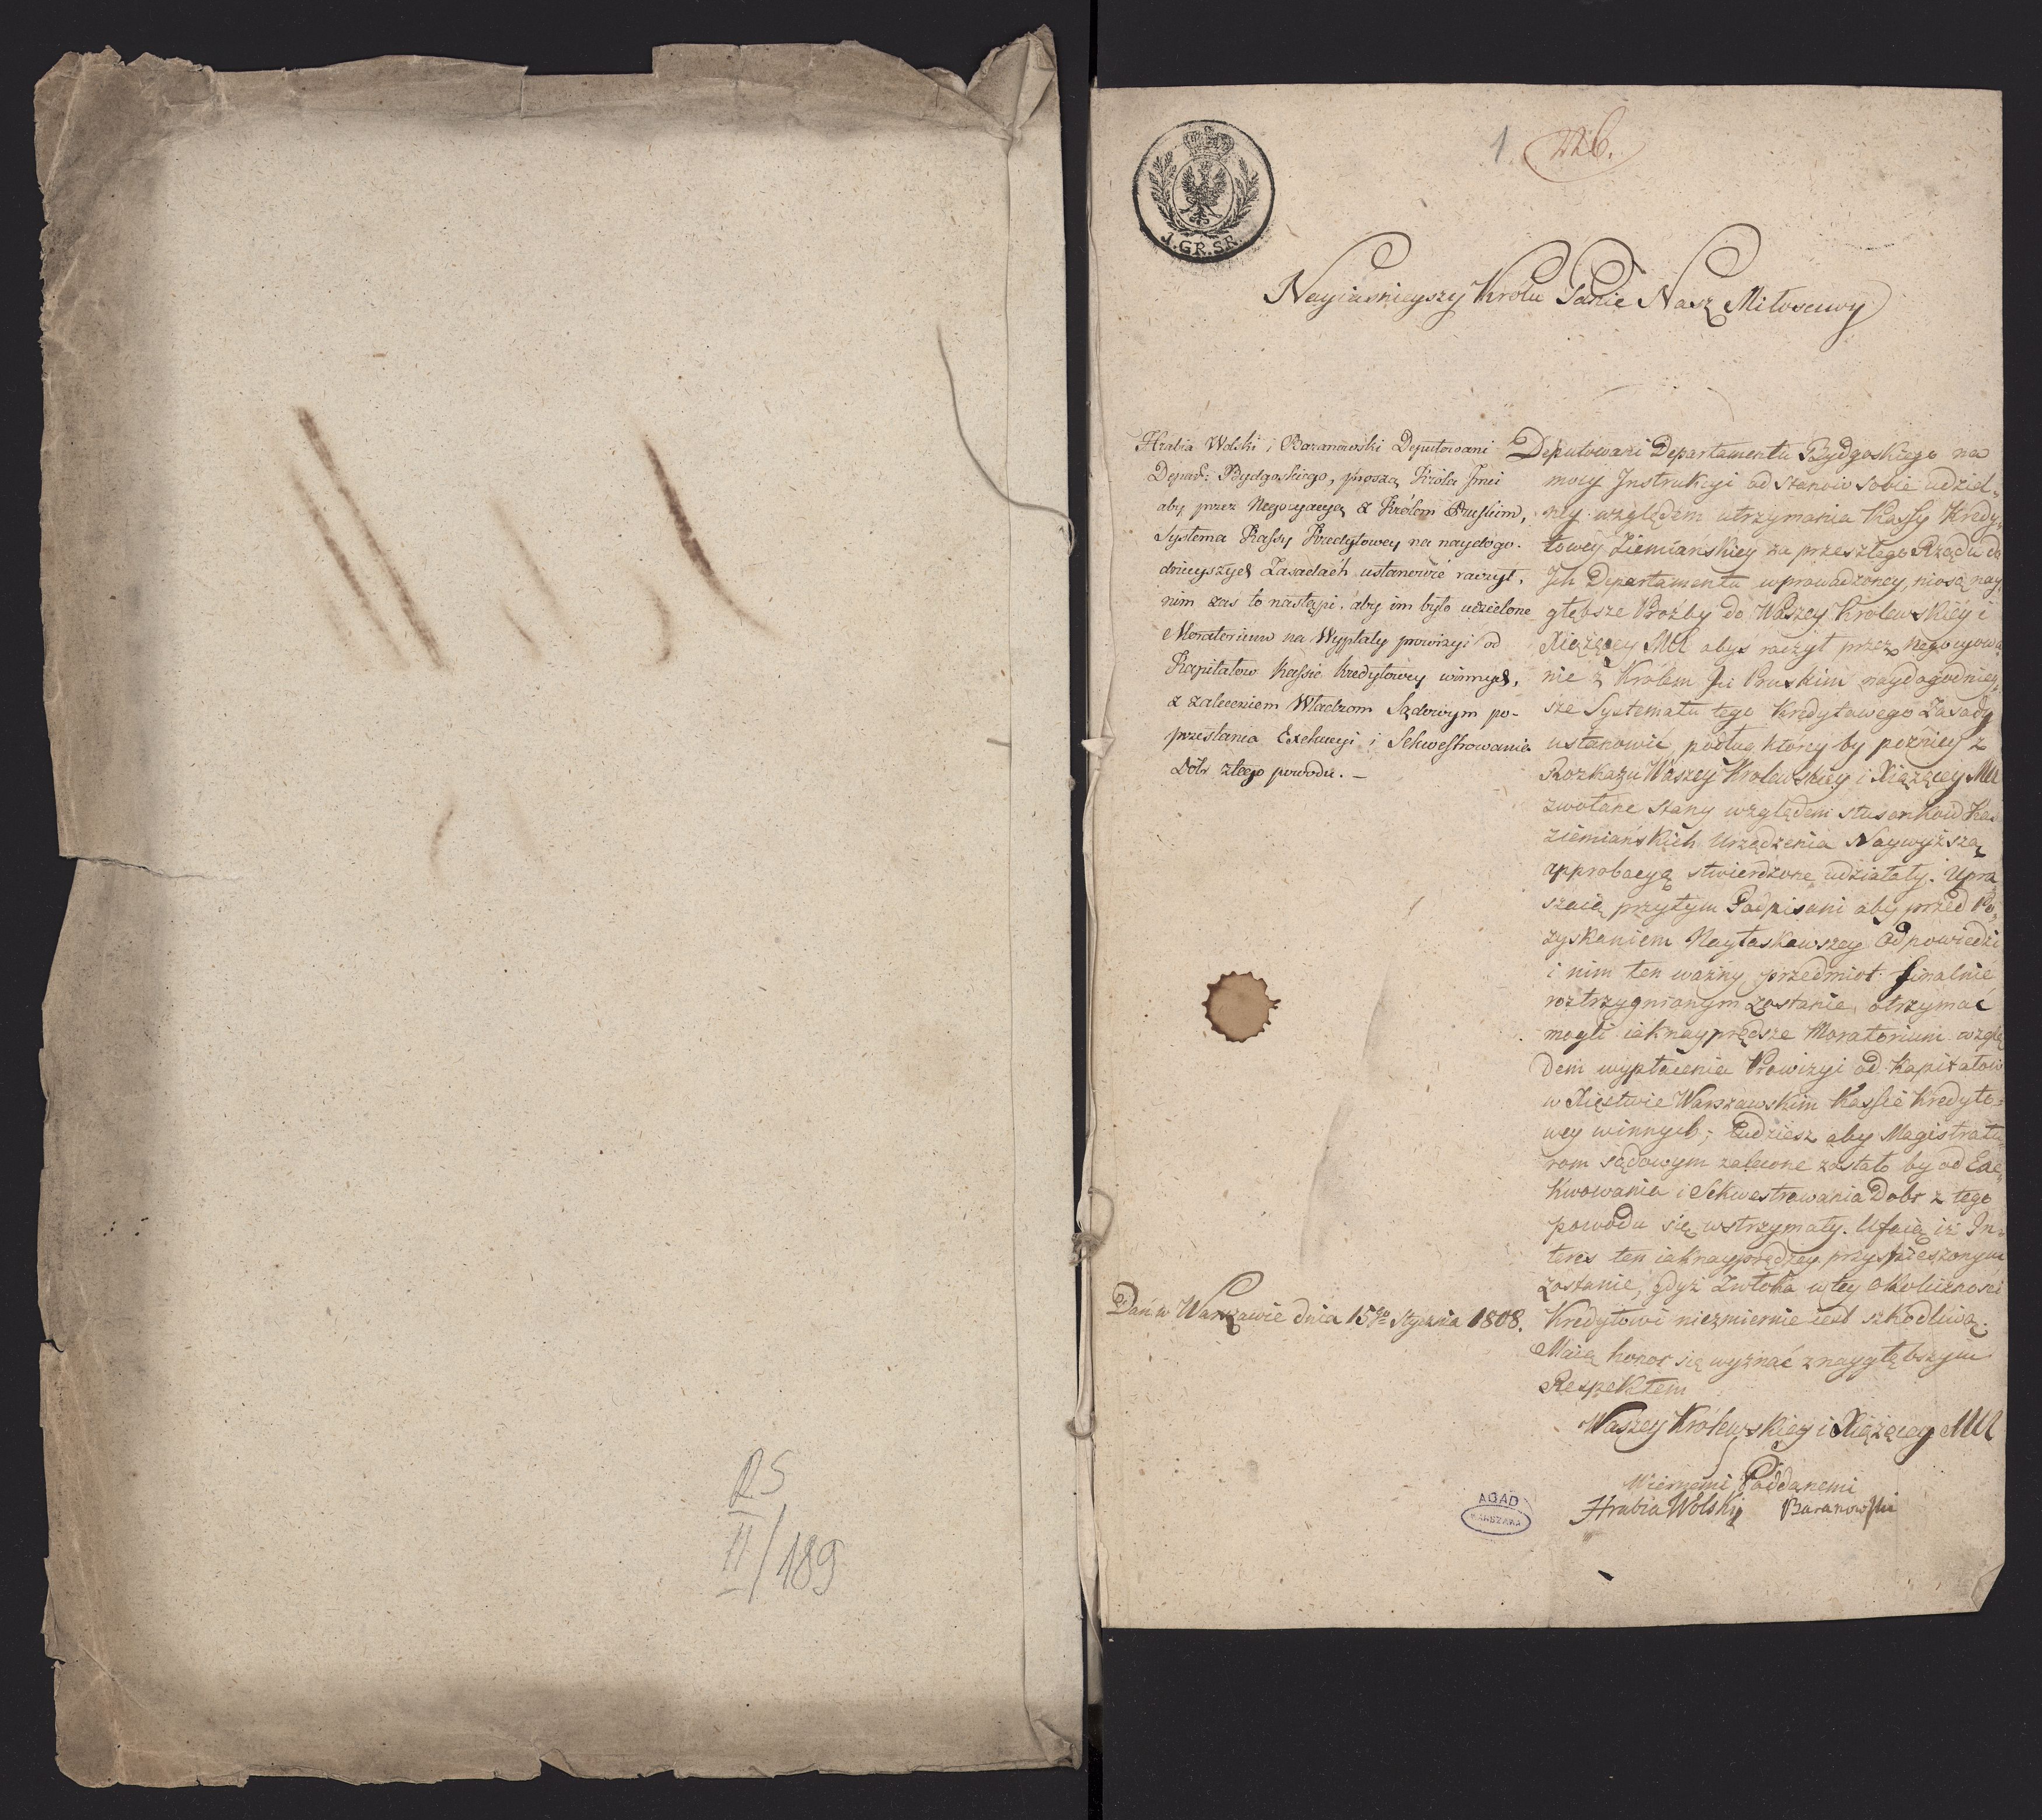 RS
II/189
1. 226.
1.GR.SR.
Nayiasnieyszy Królu Panie Nasz Miłosciwy
Hrabia Wolski i Baranowski Deputowani
Depart: Bydgoskiego, proszą Króla Jmci
aby przez Negocyacyą z Królem Pruskim,
Systema Kassy Kredytowey na naydogo-
dnieyszych Zasadach ustanowić raczył,
nim zas to nastąpi, aby im było udzielone
Moratorium na Wypłaty prowizyi od
Kapitałow Kassie Kredytowey winnych,
z zaleceniem Władzom Sądowym po-
przestania Exekucyi i Sekwestrowania
Dobr z tego powodu. —
Dan w Warszawie dnia 15go Stycznia 1808.
Deputowani Departamentu Bydgoskiego na
mocy Instrukcyi od stanow sobie udziel-
ney względem utrzymania Kassy Kredy-
towey Ziemianskiey za przeszłego Rządu do
Ich Departamentu wprowadzoney, niosą nay-
głębsze Proźby do Waszey Krolewskiey i
Xiążęcey Mci abys raczył przez negocyowa-
nie z Królem Jci Pruskim naydogodniey-
sze Systematu tego Kredytowego Zasady
ustanowić, podług który by pozniey z
Rozkazu Waszey Krolewskiey i Xiążęcey Mci
zwołane stany względem stosonkow Kas
ziemiańskich Urządzenia Naywyższą
approbacyą stwierdzone udziałały. Upra-
szaią przytym Podpisani aby przed Po-
zyskaniem Nayłaskawszey Odpowiedzi
i nim ten ważny przedmiot finalnie
roztrzygnionym zostanie, otrzymać
mogli iaknayprędsze Moratorium wzglę-
dem wypłacenia Prowizyi od Kapitałow
w Xięstwie Warszawskim Kassie Kredyto-
wey winnych; tudziesz aby Magistratu-
rom sądowym zalecone zostało by od Exe-
kwowania i Sekwestrowania Dobr z tego
powodu się wstrzymały. Ufaią iż In-
teres ten iaknayprędzey przyspieszonym
zostanie, gdyż Zwłoka w tey okoliczności
Kredytowi niezmiernie iest szkodliwą.
Maią honor się wyznać z naygłębszym
Respektem
Waszey Królewskiey i Xiążęcey Mci
Wiernemi Poddanemi
Hrabia Wolski Baranowski
AGAD
WARSZAWA